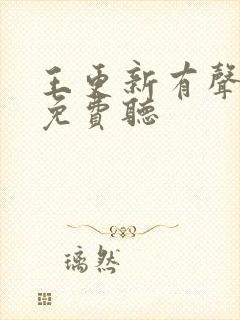 王更新有聲
免費聽
璃然